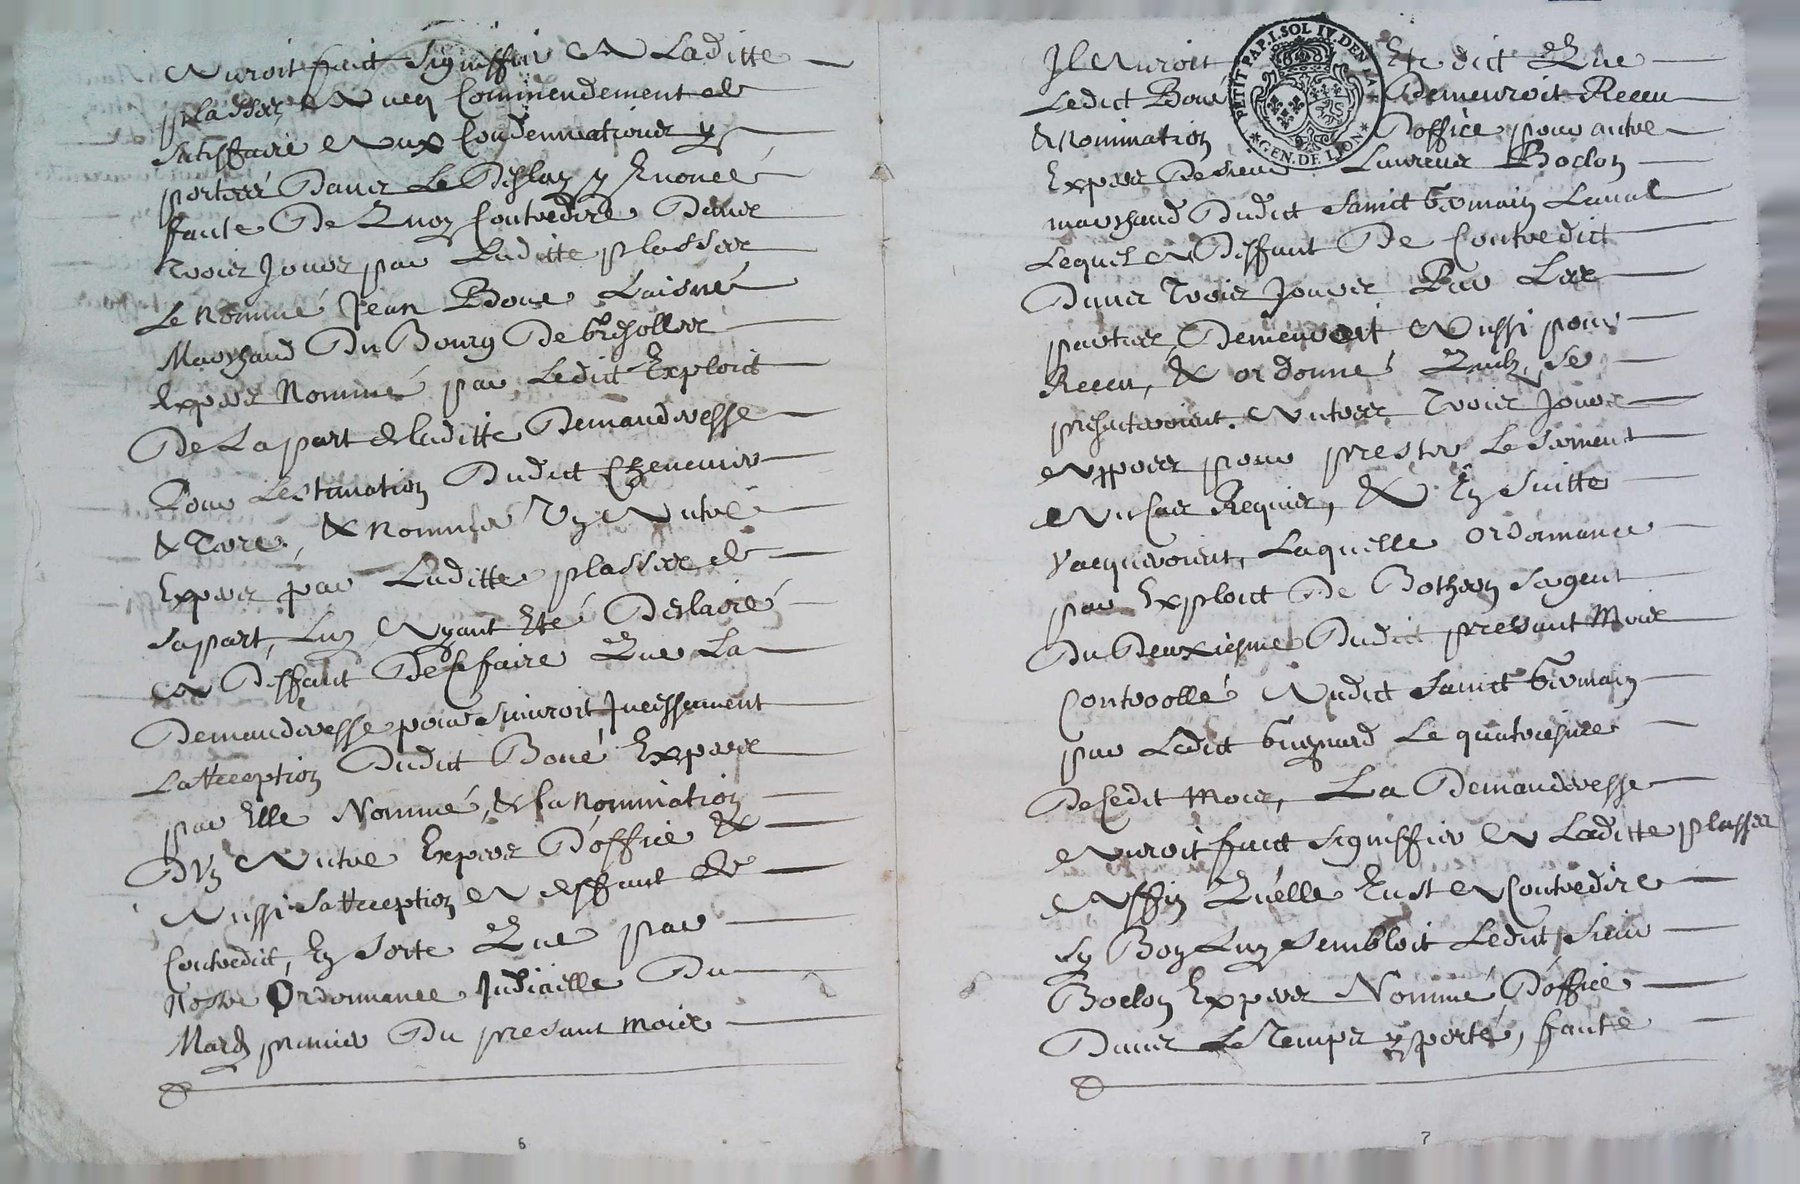 Auroit fait signiffier A Laditte
plasses Avecq Commendement de
satisffaire Aux Condemnations y
portées Dans Le Deslay y Enoncé
faute De Quoy Contredire Dans
Trois Jours par Laditte plasses
Le nommé Jean Boué L'aisné
Marchand Du Bourg De Gresolles
Expers Nommé par Ledict Exploict
De La part de laditte Demanderesse
Pour L'estimation Dudict Chenevier
& Terre, & nommer Un Autre
Expers par Laditte plasses de
sa part, Luy Ayant Eté Desclairé
A Deffaut De ce faire Que La
Demanderesse poursuivroit Incessament
L'acception Dudict Boué Expers
par Elle Nommé, & la nomination
D'un Autre Expers D'office &
Aussi sa Acception A deffaut de
Contredict, En sorte Que par
Nostre Ordonnance Judicielle Du
Mardy premier Du presant mois
6
Il Auroit Eté dict Que
Ledict Boué Demeuroit Receu
& nomination D'office pour autre
Expers De sieur Laurens Boclon
marchand Dudict Sainct Germain Laval
Lequel A Deffaut De Contredict
Dans Trois Jours Par Les
parties Demeuroit Aussi pour
Receu, & ordonné Quilz se
presenteroient Autres Trois Jours
Appres pour prester Le serment
Au Cas Requis, & En suitte
Vacqueroient, Laquelle Ordonnance
par Exploict De Botheron sergent
Du Deuxiesme Dudict presant Mois
Controollé Audict Sainct Germain
par Ledict Guynard Le quatriesme
De Cedit mois, La Demanderesse
Auroit faict signiffier A Laditte plasses
Affin Quelle Eust A Contredire
sy Bon Luy sembloit Ledict sieur
Boclon Expers Nommé D'office
Dans Le Temps y porté, faute
7
PETIT PAP. I. SOL IV. DEN. LA
* GEN. DE LION *